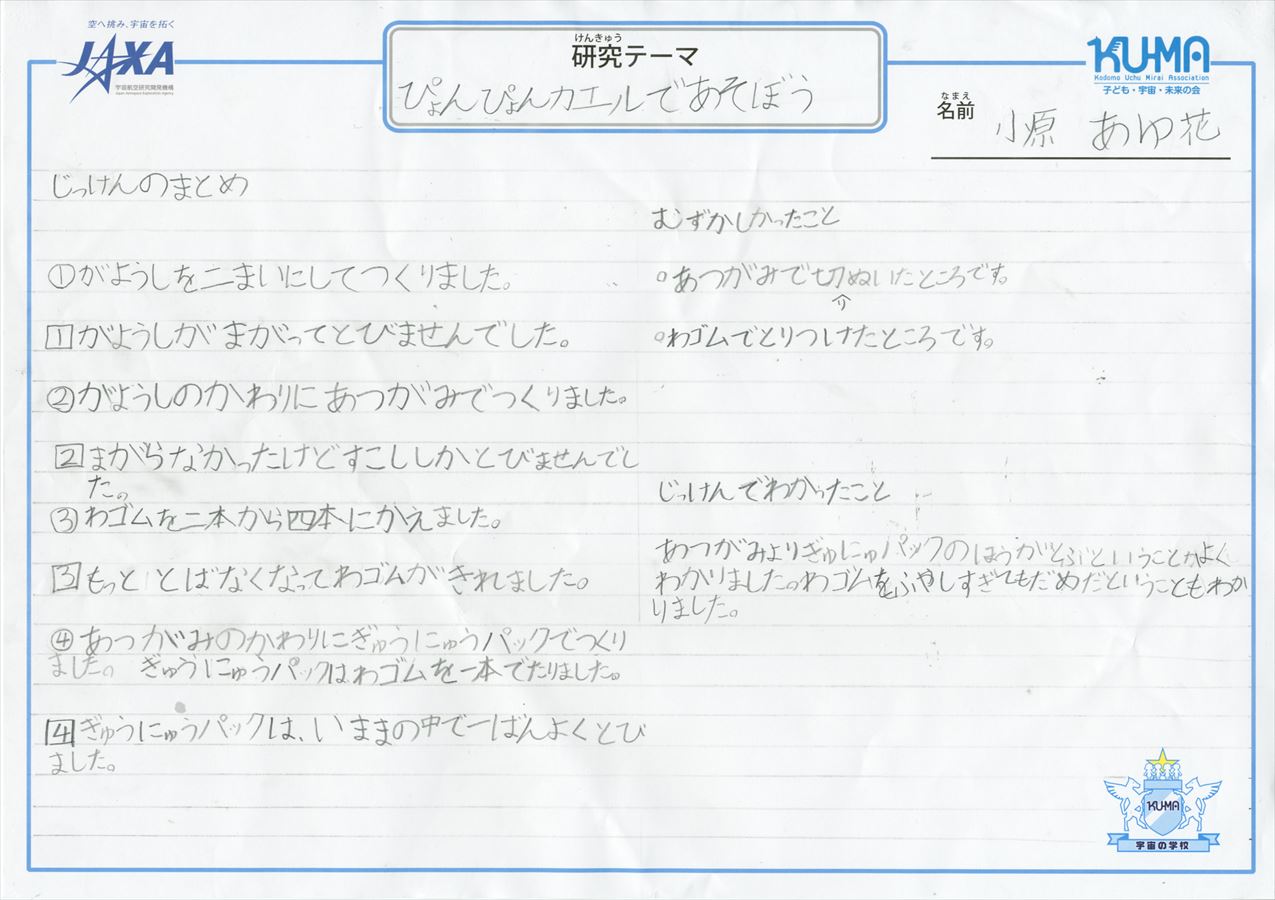 空へ挑み、宇宙を拓く
JAXA
宇宙航空研究開発機構
Japan Aerospace Exploration Agency
けんきゅう
研究テーマ
ぴょんぴょんカエルであそぼう
KU-MA
Kodomo Uchu Mirai Association
子ども・宇宙・未来の会
なまえ
名前
小原 あゆ花
じっけんのまとめ
①がようしを二まいにしてつくりました。
1がようしがまがってとびませんでした。
②がようしのかわりにあつがみでつくりました。
2まがらなかったけどすこししかとびませんでし
た。
③わゴムを二本から四本にかえました。
3もっととばなくなってわゴムがきれました。
④あつがみのかわりにぎゅうにゅうパックでつくり
ました。 ぎゅうにゅうパックはわゴムを一本でたりました。
4ぎゅうにゅうパックは、いままの中で一ばんよくとび
ました。
むずかしかったこと
○あつがみで切ぬいたところです。
り
○わゴムでとりつけたところです。
じっけんでわかったこと
あつがみよりぎゅにゅパックのほうがとぶということがよく
わかりました。わゴムをふやしすぎてもだめだということもわか
りました。
KU-MA
宇宙の学校